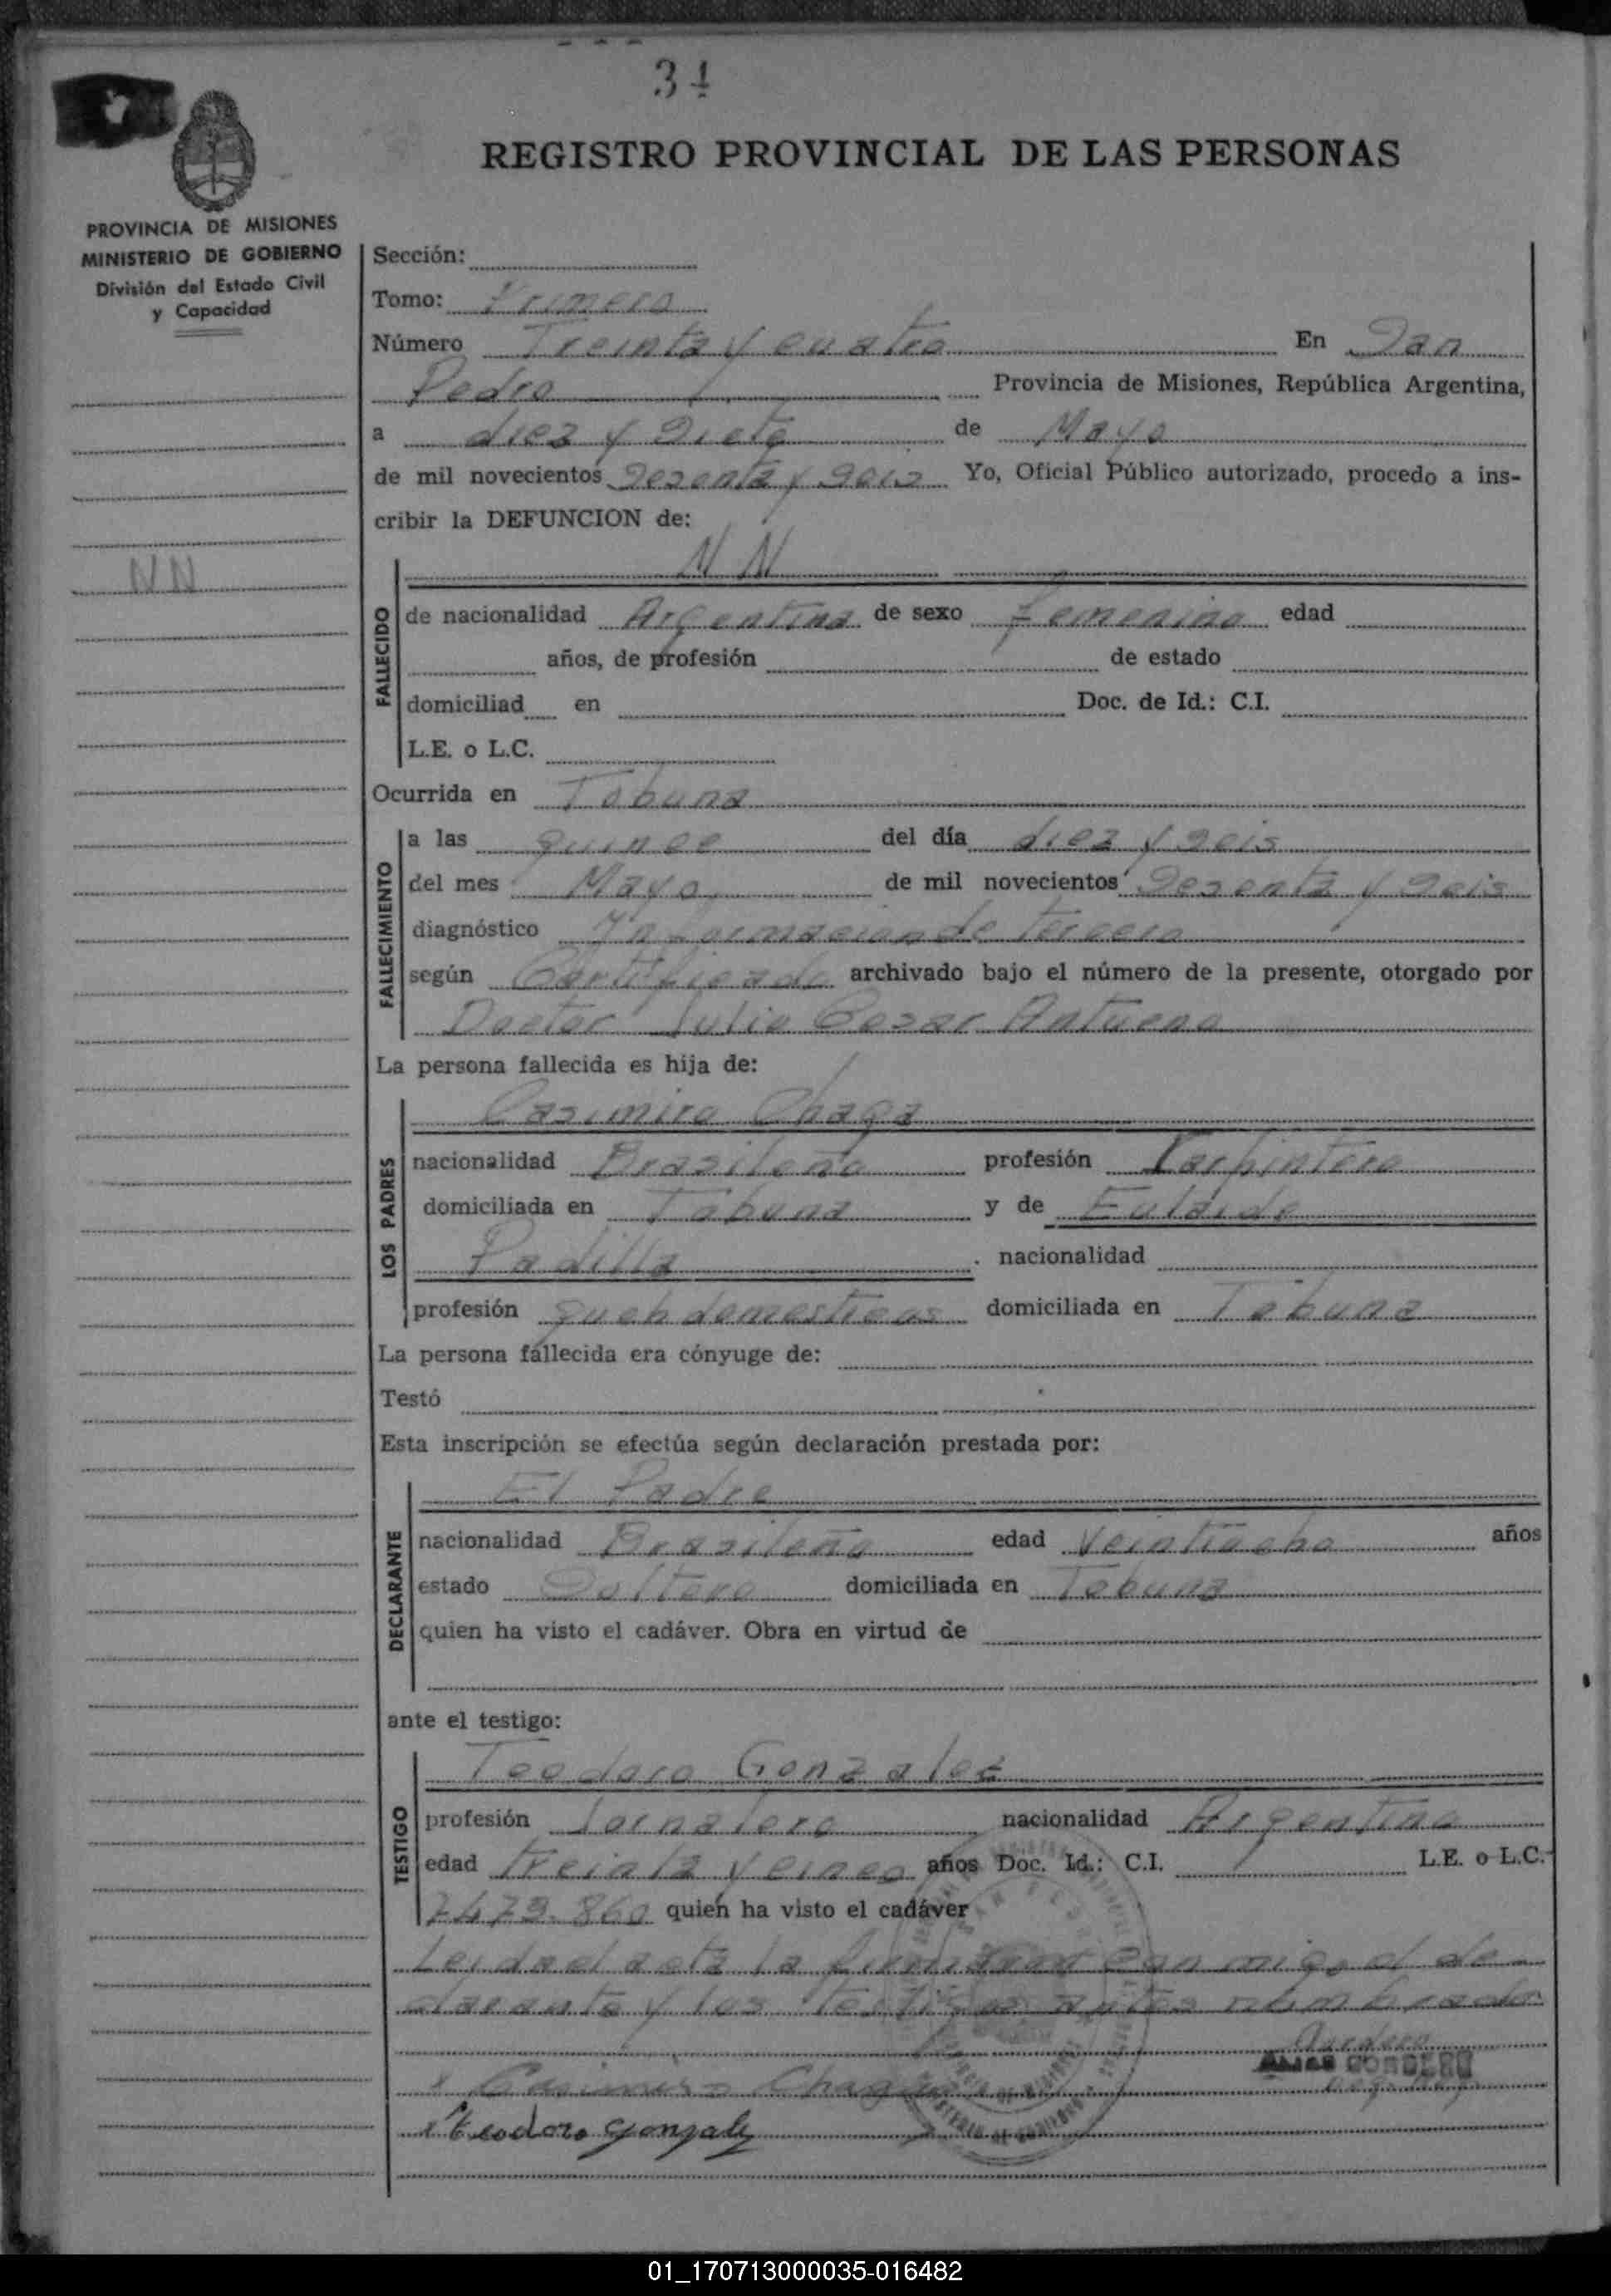 34
REGISTRO PROVINCIAL DE LAS PERSONAS
PROVINCIA DE MISIONES
MINISTERIO DE GOBIERNO
División del Estado Civil
y Capacidad
NN
Sección:
Tomo: Primero
Número Treinta y cuatro En San
Pedro Provincia de Misiones, República Argentina,
a diez y Siete de Mayo
de mil novecientos Sesenta y Seis Yo, Oficial Público autorizado, procedo a ins-
cribir la DEFUNCION de:
N N
FALLECIDO
de nacionalidad Argentina de sexo femenino edad
años, de profesión de estado
domiciliad en Doc. de Id.: C.I.
L.E. o L.C.
Ocurrida en Tobuna
FALLECIMIENTO
a las quince del día diez y seis
del mes Mayo de mil novecientos Sesenta y Seis
diagnóstico Informacion de tercero
según Certificado archivado bajo el número de la presente, otorgado por
Doctor Julio Cesar Antueno
La persona fallecida es hija de:
LOS PADRES
Casimiro Chaga
nacionalidad Brasileño profesión Carpintero
domiciliada en Tobuna y de Eulaide
Padilla nacionalidad
profesión queh domesticos domiciliada en Tobuna
La persona fallecida era cónyuge de:
Testó
Esta inscripción se efectúa según declaración prestada por:
DECLARANTE
El Padre
nacionalidad Brasileño edad Veintiocho años
estado Soltero domiciliada en Tobuna
quien ha visto el cadáver. Obra en virtud de
ante el testigo:
TESTIGO
Teodoro Gonzalez
profesión Jornalero nacionalidad Argentino
edad treinta y cinco años Doc. Id.: C.I. L.E. o L.C.
7473.860 quien ha visto el cadáver
Leida el acta la firmaron con migo el de-
clarante y los testigos antes nombrado
x Casimiro Chaga
x teodoro gonzalez
01_170713000035-016482